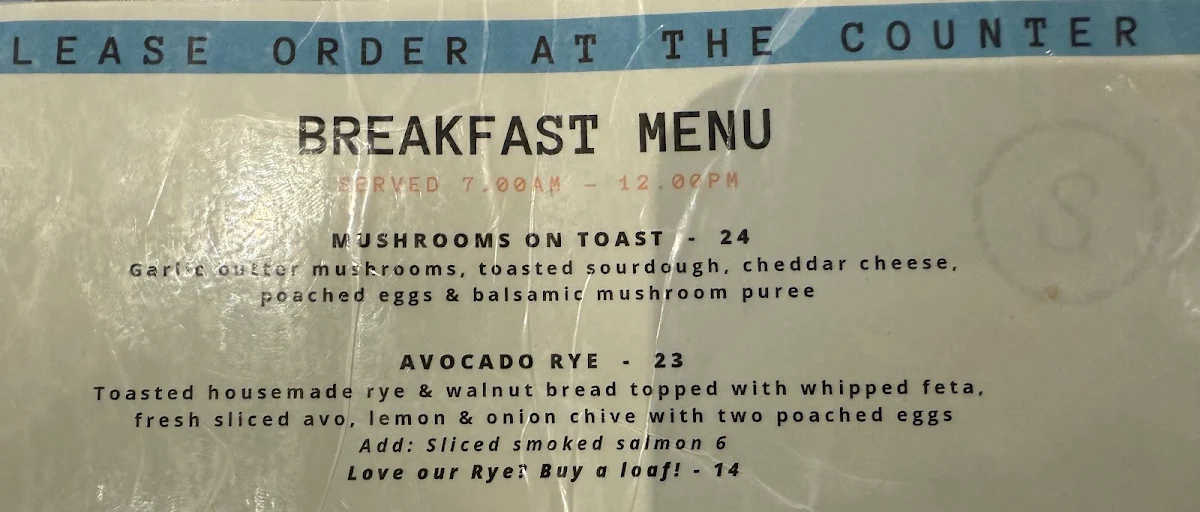 LEASE ORDER AT THE COUNTER
BREAKFAST MENU
SERVED 7.00AM - 12.00PM
MUSHROOMS ON TOAST - 24
Garlic butter mushrooms, toasted sourdough, cheddar cheese,
poached eggs & balsamic mushroom puree
AVOCADO RYE - 23
Toasted housemade rye & walnut bread topped with whipped feta,
fresh sliced avo, lemon & onion chive with two poached eggs
Add: Sliced smoked salmon 6
Love our Rye? Buy a loaf! - 14
S